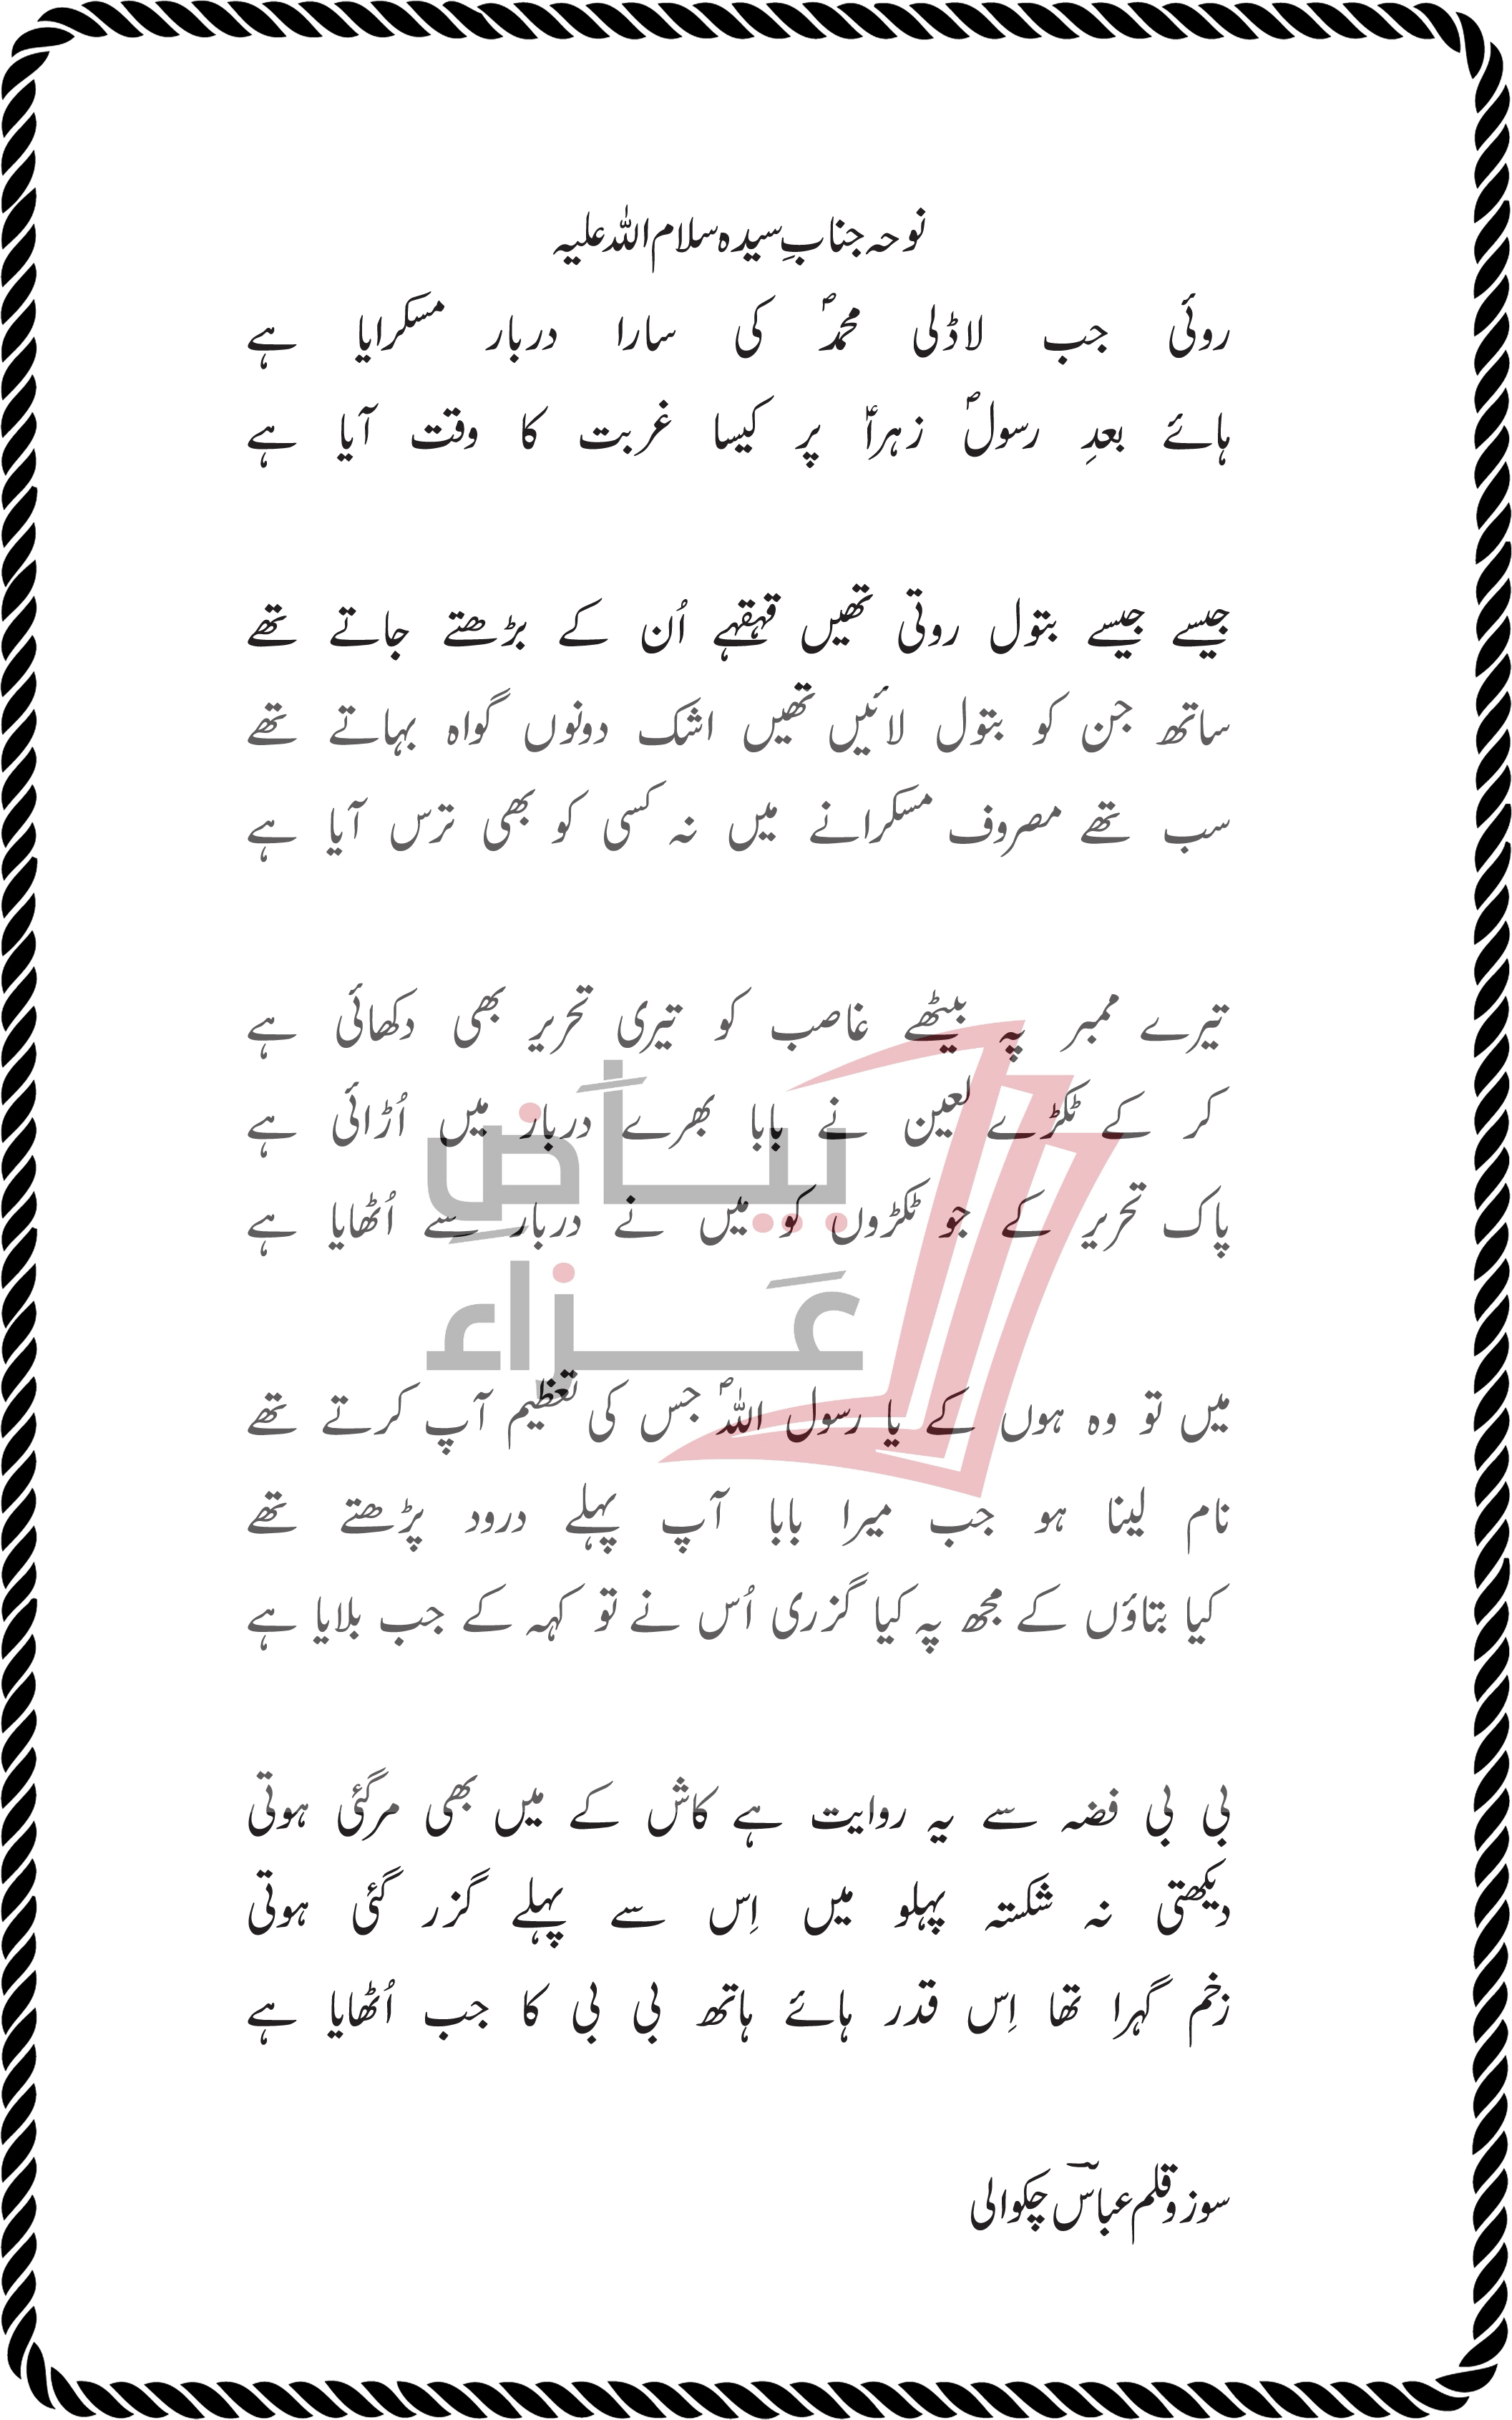 نوحہ جنابِ سیدہ سلام اللہ علیہ
روئی جب لاڈلی محمدؐ کی سارا دربار مسکرایا ہے
ہائے بعدِ رسولؐ زہراؑ پر کیسا غربت کا وقت آیا ہے
جیسے جیسے بتول روتی تھیں قہقہے اُن کے بڑھتے جاتے تھے
ساتھ جن کو بتول لائیں تھیں اشک دونوں گواہ بہاتے تھے
سب تھے مصروف مسکرانے میں نہ کسی کو بھی ترس آیا ہے
تیرے ممبر پہ بیٹھے غاصب کو تیری تحریر بھی دکھائی ہے
کر کے ٹکڑے لعین نے بابا بھرے دربار میں اُڑائی ہے
پاک تحریر کے جو ٹکڑوں کو میں نے دربار سے اُٹھایا ہے
بیاض
عزاء
میں تو وہ ہوں کے یا رسول اللہؐ جس کی تعظیم آپ کرتے تھے
نام لینا ہو جب میرا بابا آپ پہلے درود پڑھتے تھے
کیا بتاؤں کے مجھ پہ کیا گزری اُس نے تو کہہ کے جب بلایا ہے
بی بی فضہ سے یہ روایت ہے کاش کے میں بھی مرگئی ہوتی
دیکھتی نہ شکستہ پہلو میں اِس سے پہلے گزر گئی ہوتی
زخم گہرا تھا اِس قدر ہائے ہاتھ بی بی کا جب اُٹھایا ہے
سوز و قلم عباسؔ چکوالی